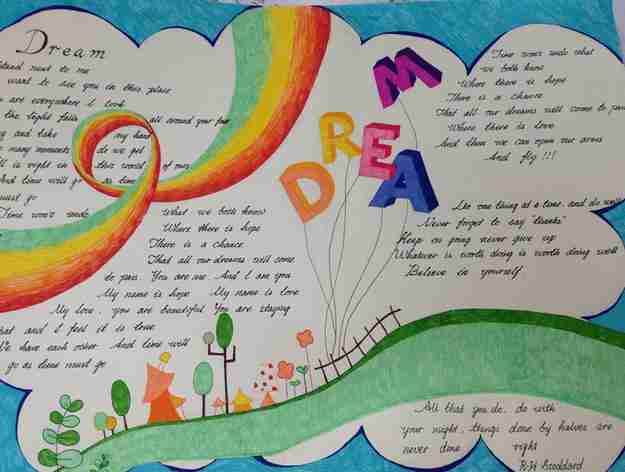 Dream
stand next to me
want to see you in this place
are everywhere I look
the light falls all around your feet
and take my hand
many moments do we get
is right in this world of ours
And time will go as time
must go
Time won't undo what we both know
Where there is hope
There is a chance
That all our dreams will come
to pass. You are me And I am you
My name is hope My name is love
My love, you are beautiful You are staying
and I feel it is love
We have each other And time will
go as time must go
DREAM
Time won't undo what
we both know
Where there is hope
There is a chance
That all our dreams will come to pass
Where there is love
And then we can open our arms
And fly !!!
one thing at a time, and do well
Never forget to say "thanks"
Keep on going never give up
Whatever is worth doing is worth doing well
Believe in yourself
All that you do, do with
your might, things done by halves are
never done right
R.H. Stoddard